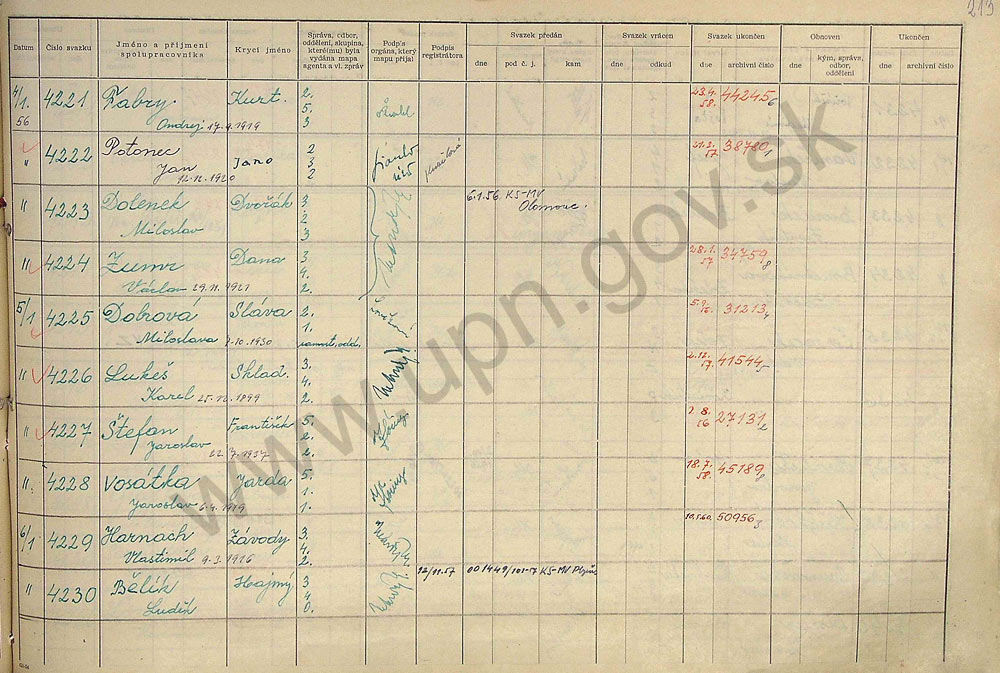 213
Datum Číslo svazku Jméno a příjmení spolupracovníka Krycí jméno Správa, odbor, oddělení, skupina, které(mu) byla vydána mapa agenta a vl. zpráv Podpis orgána, který mapu přijal Podpis registrátora Svazek předán Svazek vrácen Svazek ukončen Obnoven Ukončen
dne pod č. j. kam dne odkud dne archivní číslo dne kým, správa, odbor, oddělení dne archivní číslo
4/1. 56 4221 Fabry Kurt. 2. 5. 3 23.4. 58. 44245 6
Ondrej 17.9.1919
" 4222 Potonec Jano 2 3 2 38780 1
Jan 12.12.1920
" 4223 Dolenek Dvořák 3 2 3 6.1.56. KS-MV Olomouc.
Miloslav
" 4224 Zumr Dana 3 4. 2. 28.1. 57 34759 8
Václav 29.11.1921
5/1 4225 Dobrová Sláva 2. 1. samost. odd. 31213
Miloslava 1.10.1930
" 4226 Lukeš Sklad. 3. 4. 2. 2.12. 57. 41544
Karel 25.12.1899
" 4227 Štefan František 5. 2. 2. 2.8. 56 27131 2
Jaroslav 22.7.1937
" 4228 Vosátka Jarda 5. 1. 1. 18.7. 58. 45189 8
Jaroslav 6.4.1919
6/1 4229 Harnach Závody 3. 4. 2. 10.5.60. 50956 3
Vlastimil 9.3.1916
" 4230 Bělík Hajmý 3 4 0. 12/11.57 001449/101-57 KS-MV Plzeň
Luděk
www.upn.gov.sk